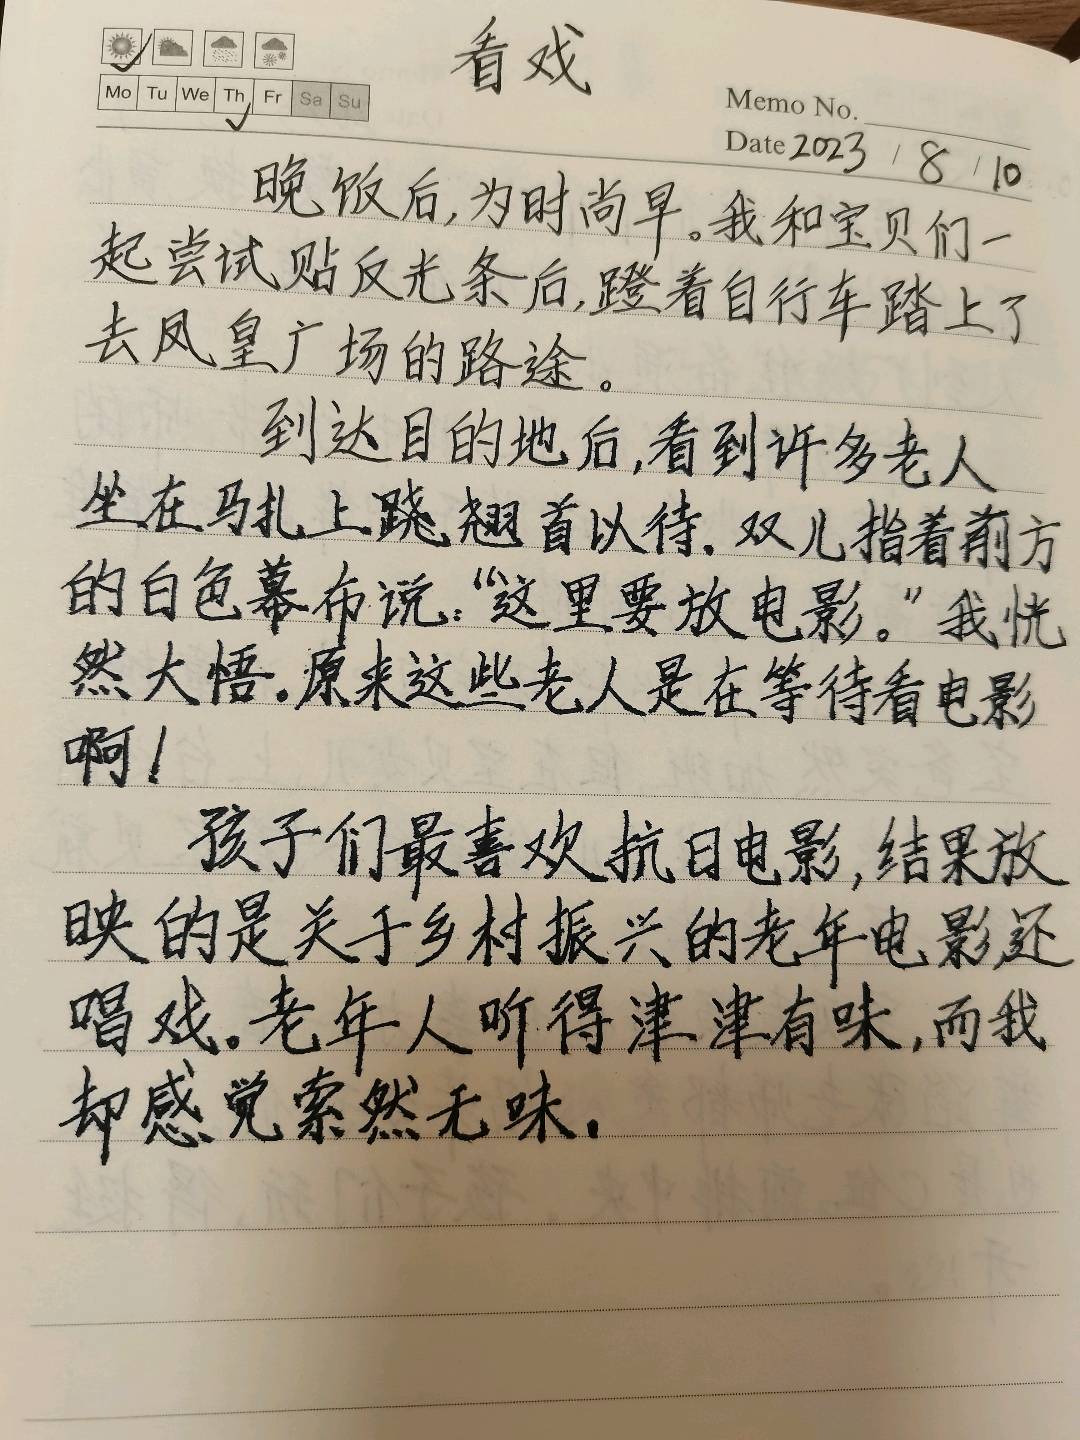 看戏
Mo Tu We Th Fr Sa Su
Memo No.
Date 2023 / 8 / 10
晚饭后,为时尚早。我和宝贝们一
起尝试贴反光条后,蹬着自行车踏上了
去凤皇广场的路途。
到达目的地后,看到许多老人
坐在马扎上跷翘首以待.双儿指着前方
的白色幕布说:“这里要放电影。”我恍
然大悟.原来这些老人是在等待看电影
啊!
孩子们最喜欢抗日电影,结果放
映的是关于乡村振兴的老年电影,还
唱戏.老年人听得津津有味,而我
却感觉索然无味.